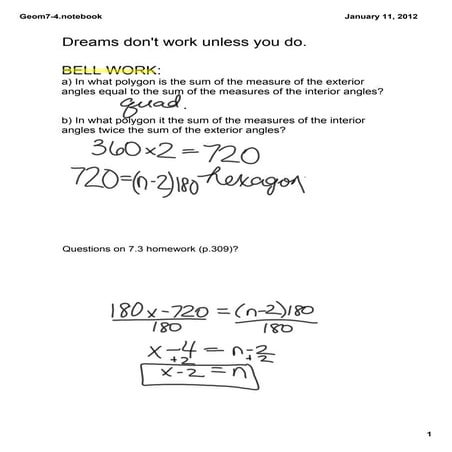 Geom7-4.notebook
January 11, 2012
Dreams don't work unless you do.
BELL WORK:
a) In what polygon is the sum of the measure of the exterior
angles equal to the sum of the measures of the interior angles?
quad.
b) In what polygon it the sum of the measures of the interior
angles twice the sum of the exterior angles?
360x2=720
720=(n-2)180 hexagon
Questions on 7.3 homework (p.309)?
180x-720 = (n-2)180
180 180
x-4 = n-2
+2 +2
x-2 = n
1